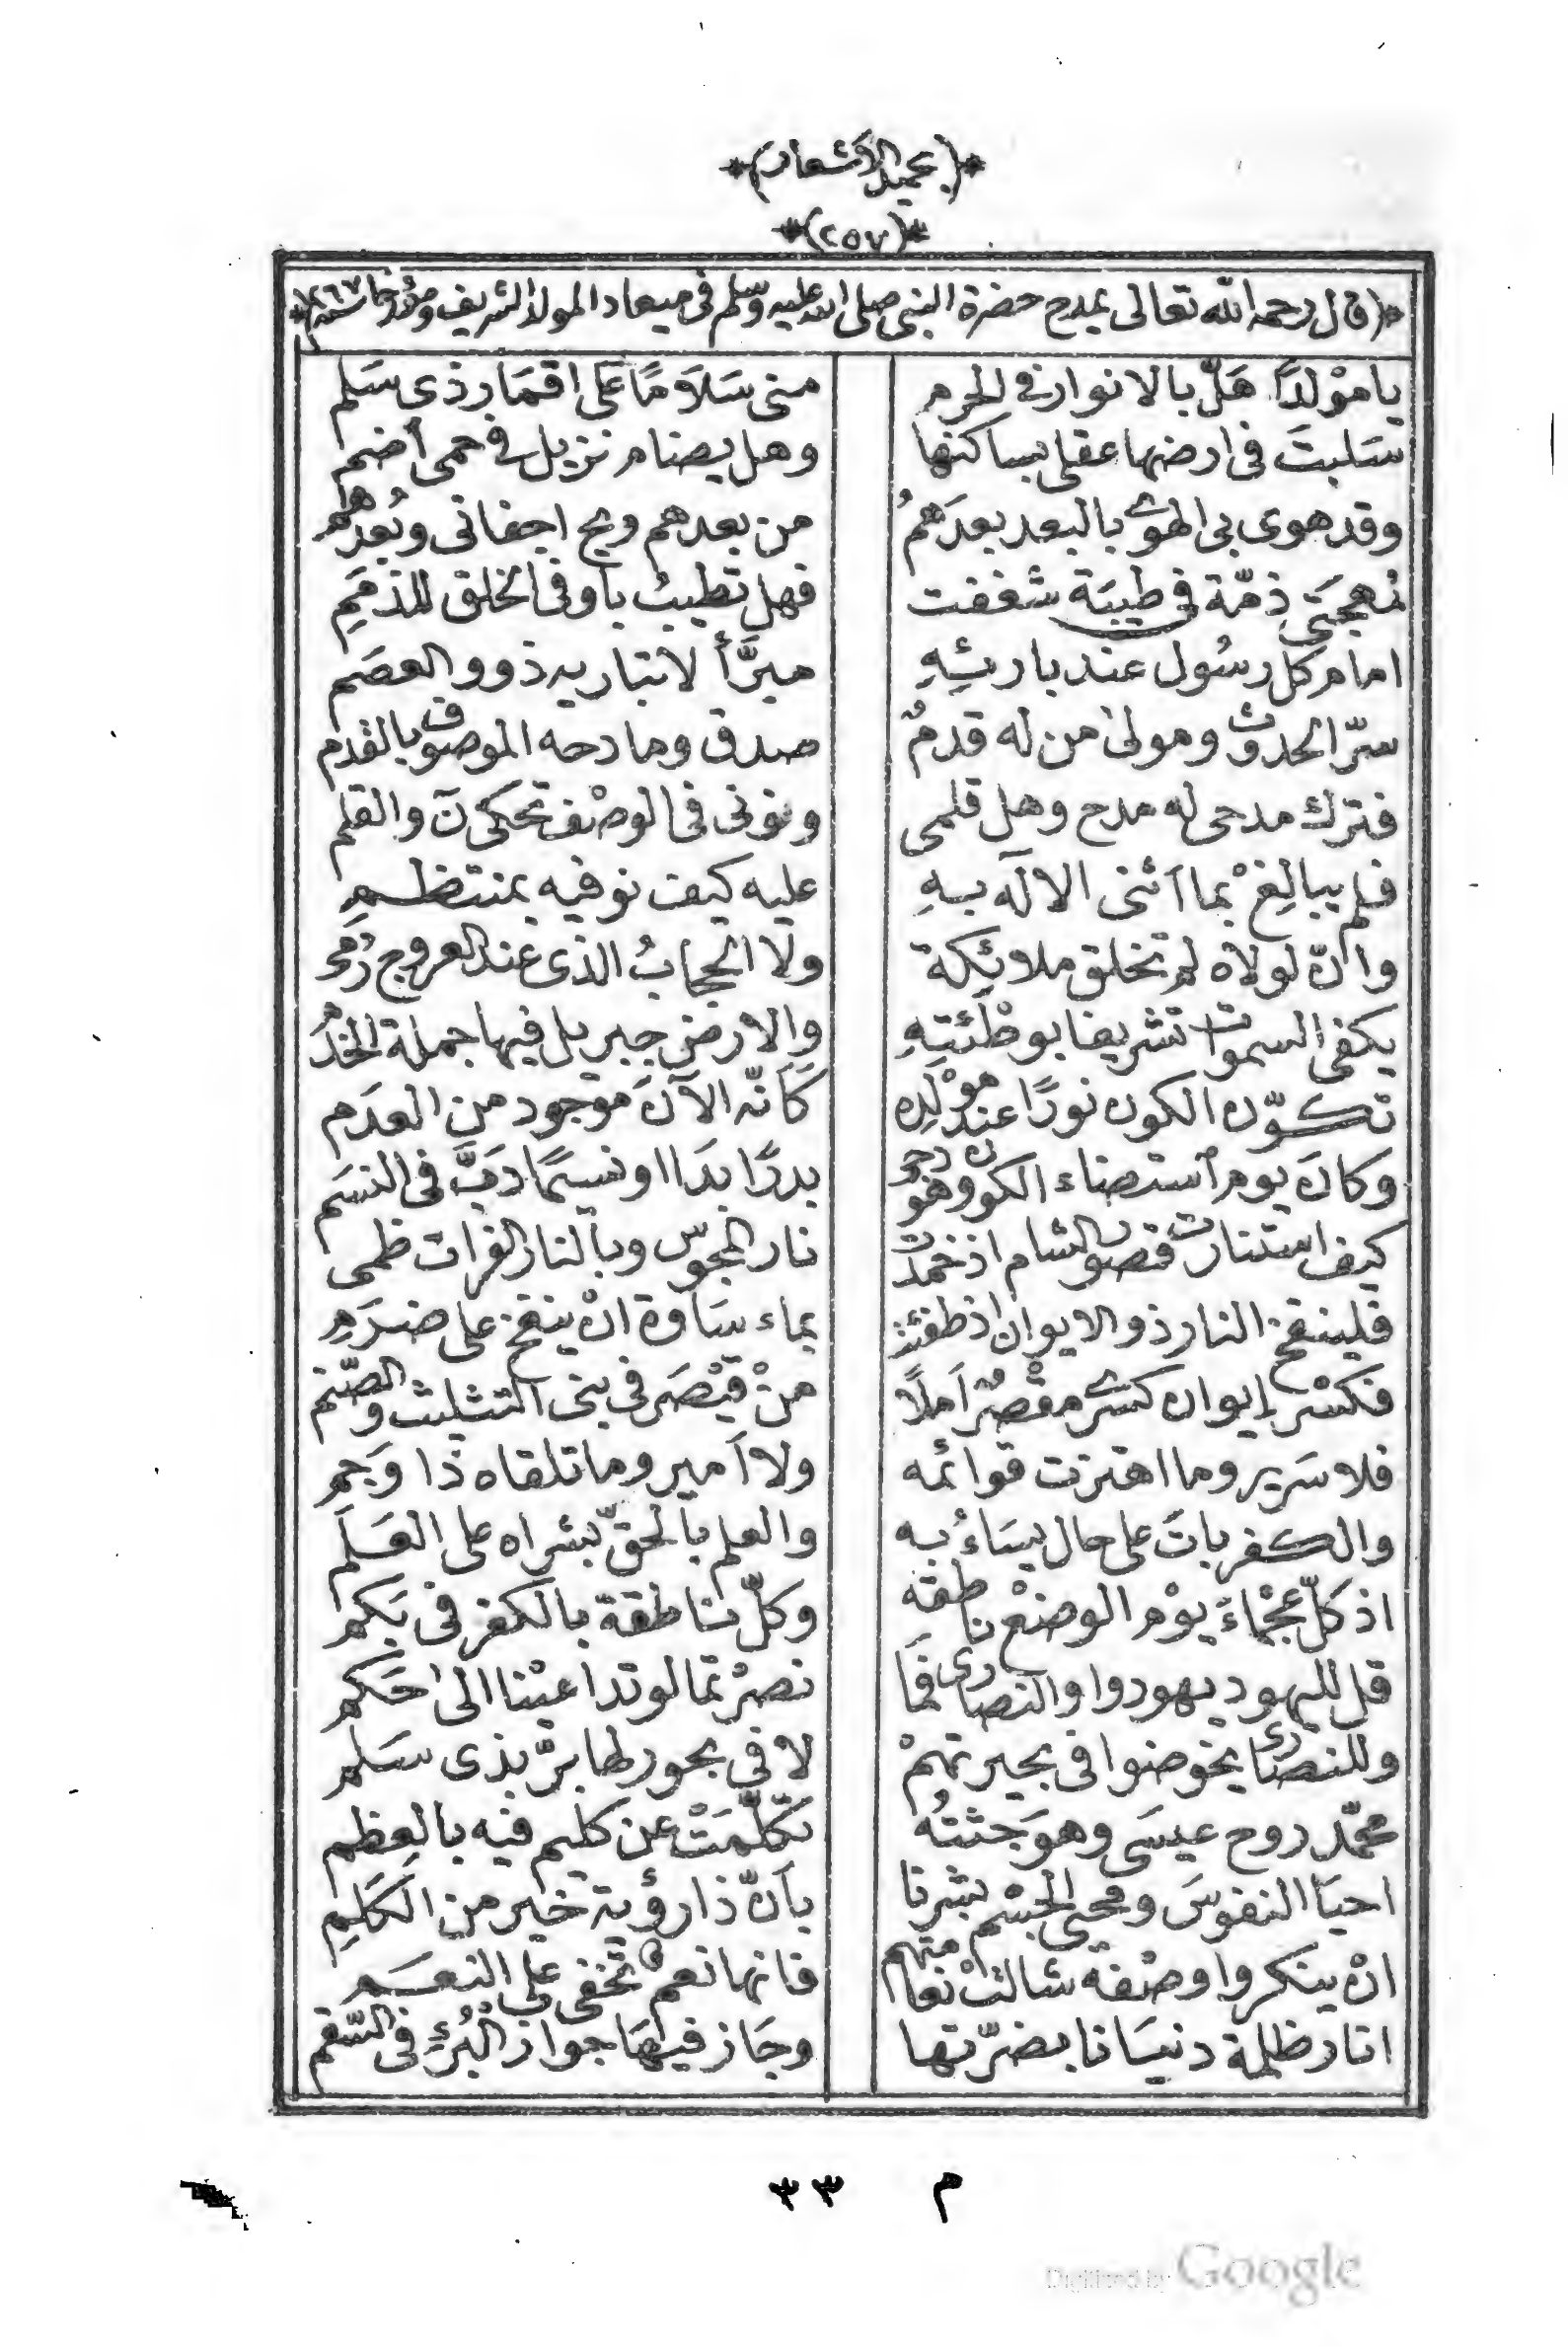 *(بحميد الاشعار)*
*(٢٥٧)*
*(قال رحمه الله تعالى يمدح حضرة النبى صلى الله عليه وسلم فى ميعاد المولد الشريف ومؤرخا سنة ١٢٦٧)*
يا موْلدًا هَلّ بالانوار فى الحرم منى سَلاَمًا عَلى اقمَار ذى سَلم
سَلبتَ فى ارضها عقلى بساكنها وهل يضام نزيل فى حمى أضم
وقد هوى بى الهوى بالبعد بعدَهمُ من بعدهم ويح اجفانى وبُعدِهم
لمهجتى ذِمّة فى طيبَة شغفت فهل تطيبُ باوفى الخلق للذممِ
امام كل رسُول عند بارئِهِ مبرَّأ لا تباريه ذوو العصَم
سرّ الحدوث ومولىٰ من له قدمُ صدق ومادحه الموصوف بالقدم
فترك مدحى له مدح وهل قلمى ونونى فى الوصْف تحكى نٓ والقلم
فلم يبالِغْ بما اَثنى الالَه بهِ عليه كيف نوفيه بمنتظمِ
وانّ لولاه لم تخلق ملائِكة ولا الحجابُ الذى عند العروج رُمى
يكفى السموات تشريفا بوطْئتِهِ والارض جبريل فيها جملة الخدُم
تكوّن الكون نورًا عند موْلدِه كَأنّه الآنَ موْجود من العدَم
وكانَ يوم استضاء الكون وهو دجى بدرًا بدَا او نسيمًا دَبَّ فى النسَم
كيف استنارت قصور الشام اذ خمدت نار المجوس وبالنار الفرات ظمى
فلينفخ النار ذو الايوان اذ طفئت بماء سَاوة انْ ينفخ على ضرَمِ
فكسْر إيوان كسرى مقْصرُ اَملاً منْ قيْصَر فى بنى التثليث والصّنم
فلا سَرير وما اهتزت قوائمه ولا اَمير وما تلقاه ذا وَجم
والكفر باتَ على حال يسَاءُ به والعلم بالحقّ بشراه على العَلَم
اذ كلّ عجْماءَ يوْم الوضْع ناطقة وكلّ ناطقة بالكفر فى بَكم
قل لليهود يهودوا والنصارى فمَا نصرْتمالو تداعيْنا الى حَكم
وللنصارى يخوضوا فى بحيرتهمْ لا فى بحور طما برّ بذى سَلم
محمّد روح عيسَى وهوَ جثتهُ تكلّمَتْ عن كليم فيه بالعظم
احيَا النفوسَ ومحيى الجسْم بشرنا باَنّ ذا رؤية خير من الكَلِمِ
انْ ينكروا وصْفه شالتْ نعامتهم فانها نعمْ تخفى على النعَم
انار ظلمة دنيَانا بضرّتها وجَاز فيهَا جواز البُرْءِ فى السّقم
م ٣٣
Digitized by Google